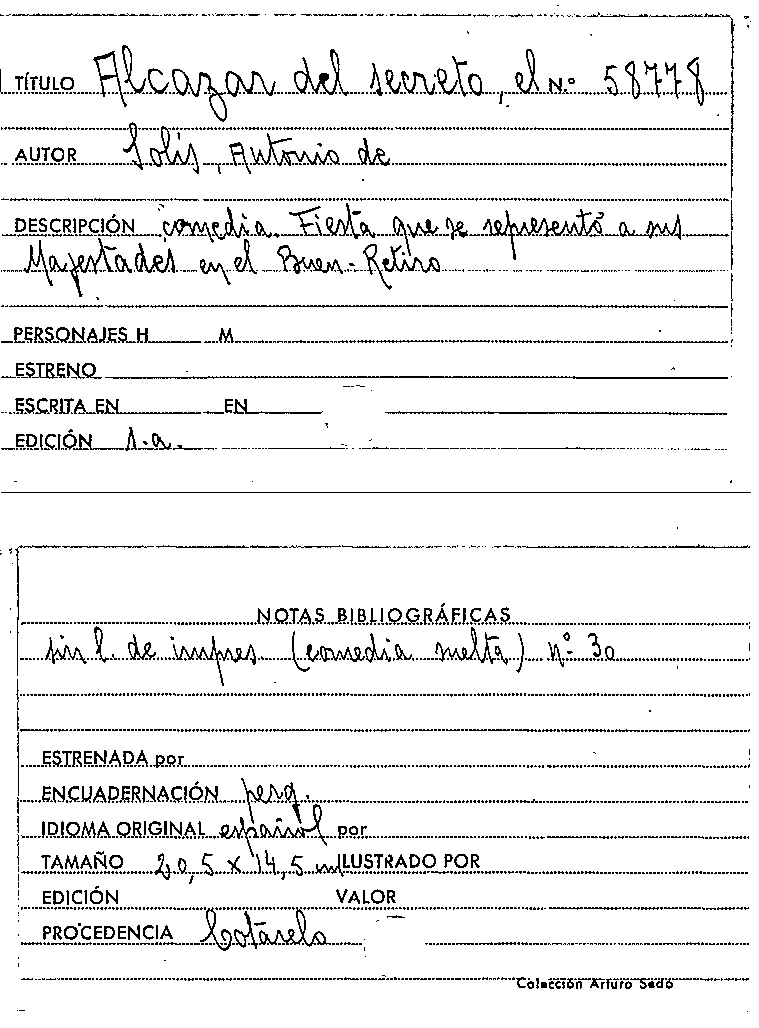 TÍTULO Alcazar del secreto, el N.º 58778
AUTOR Solis, Antonio de
DESCRIPCIÓN comedia. Fiesta que se representó a sus
Majestades en el Buen-Retiro
PERSONAJES H M
ESTRENO
ESCRITA EN EN
EDICIÓN s.a.
NOTAS BIBLIOGRÁFICAS
sin l. de impres. (comedia suelta) nº 30
ESTRENADA por
ENCUADERNACIÓN perg.
IDIOMA ORIGINAL español por
TAMAÑO 20,5 x 14,5 cm ILUSTRADO POR
EDICIÓN VALOR
PROCEDENCIA Cotarelo
Colección Arturo Sedó